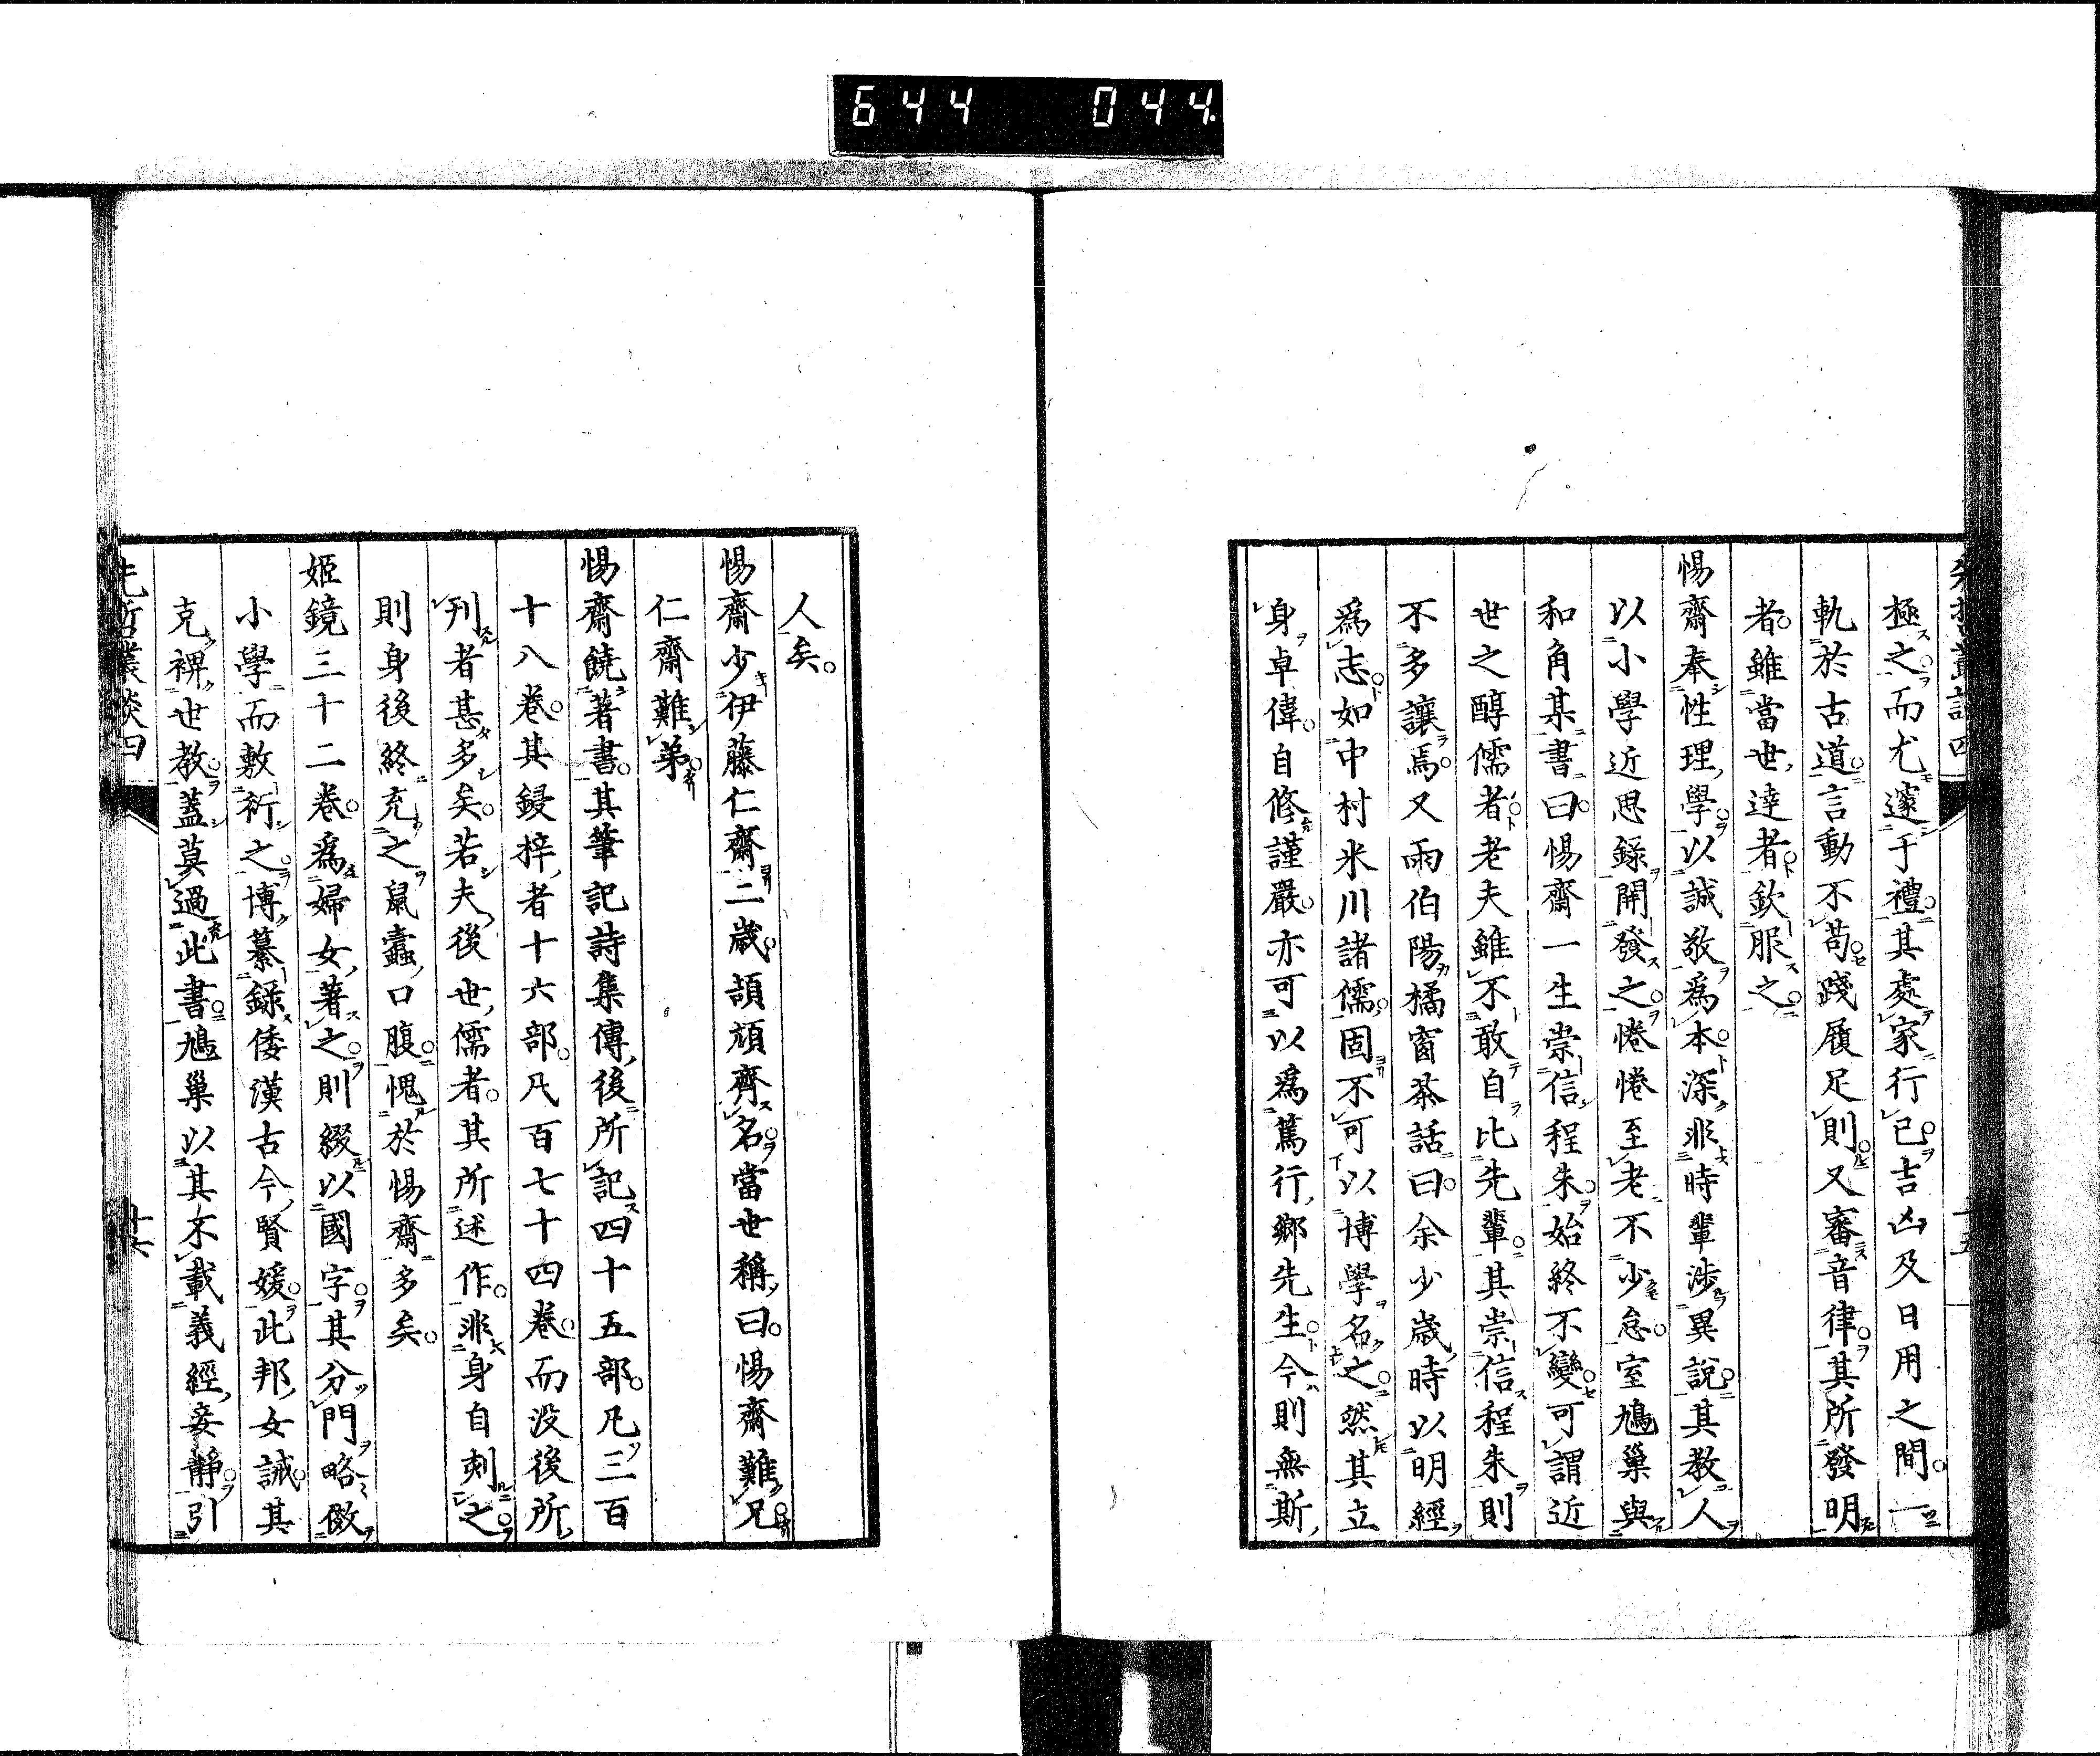 644 044.
先哲叢談四
極之而尤邃于禮其處家行己吉凶及日用之間一
軌於古道言動不苟踐履足則又審音律其所發明
者雖當世達者欽服之
惕齋奉性理學以誠敬爲本深非時輩涉異說其教人
以小學近思錄開發之惓惓至老不少怠室鳩巢與
和角某書曰惕齋一生崇信程朱始終不變可謂近
世之醇儒者老夫雖不敢自比先輩其崇信程朱則
不多讓焉又雨伯陽橘窗茶話曰余少歲時以明經
爲志如中村米川諸儒固不可以博學名之然其立
身卓偉自修謹嚴亦可以爲篤行鄉先生今則無斯
人矣
惕齋少伊藤仁齋二歲頡頏齊名當世稱曰惕齋難兄
仁齋難弟
惕齋饒著書其筆記詩集傳後所記四十五部凡三百
十八卷其鋟梓者十六部凡百七十四卷而沒後所
刊者甚多矣若夫後世儒者其所述作非身自刻之
則身後終充之鼠蠹口腹愧於惕齋多矣
姬鏡三十二卷爲婦女著之則綴以國字其分門略倣
小學而敷衍之博纂錄倭漢古今賢媛此邦女誡其
克裨世教蓋莫過此書鳩巢以其不載義經妾靜引
先哲叢談四
十六